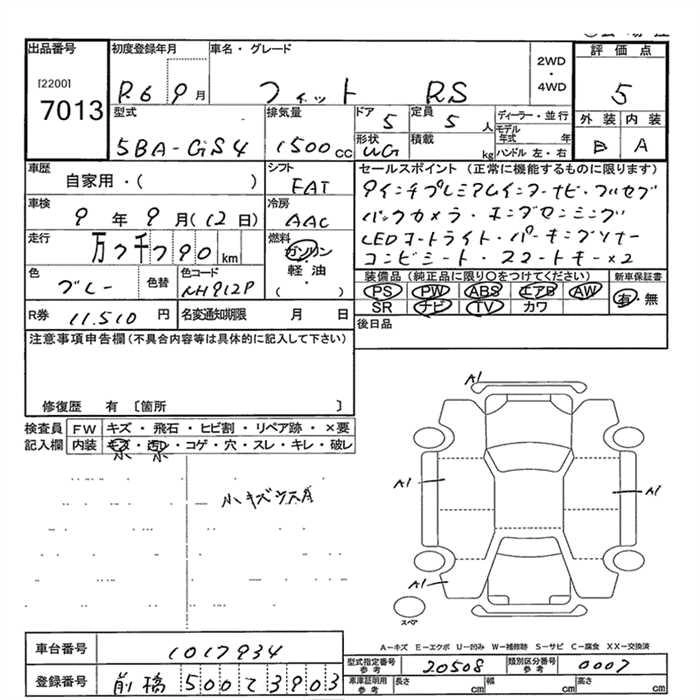 出品番号 初度登録年月 車名・グレード 2WD・4WD 評価点
[2200]
7013 R.6 9月 フィット RS 5
型式 排気量 ドア 5 定員 5人 ディーラー・並行 外装 内装
5BA-GS4 1500cc 形状 WG 積載 kg モデル年式 年 ハンドル 左・右 B A
車歴 シフト セールスポイント (正常に機能するものに限ります)
自家用・( ) FAT 9インチプレミアムインターナビ・フルセグ
車検 冷房 バックカメラ・ホンダセンシング
9年9月(12日) AAC LEDヘッドライト・パーキングソナー
走行 燃料 コンビシート・スマートキー×2
万7千790km ガソリン・軽油・( )
色 色替 色コード 装備品 (純正品に限り○をつけてください) 新車保証書
ブルー NH912P PS PW ABS エアB AW 有・無
SR ナビ TV カワ
R券 11.510円 名変通知期限 月 日 後日品
注意事項申告欄(不具合内容等は具体的に記入して下さい)
修復歴 有 〔箇所 〕
検査員 FW キズ・飛石・ヒビ割・リペア跡・×要
記入欄 内装 キズ・汚レ・コゲ・穴・スレ・キレ・破レ
小 小
小キズ
A1
A1
A1
A1
スペア
A-キズ E-エクボ U-凹み W-補修跡 S-サビ C-腐食 XX-交換済
車台番号 1017934
型式指定番号 参考 20508 類別区分番号 参考 0007
登録番号 前橋 500 て 3903
車庫証明用 参考 長さ cm 幅 cm 高さ cm